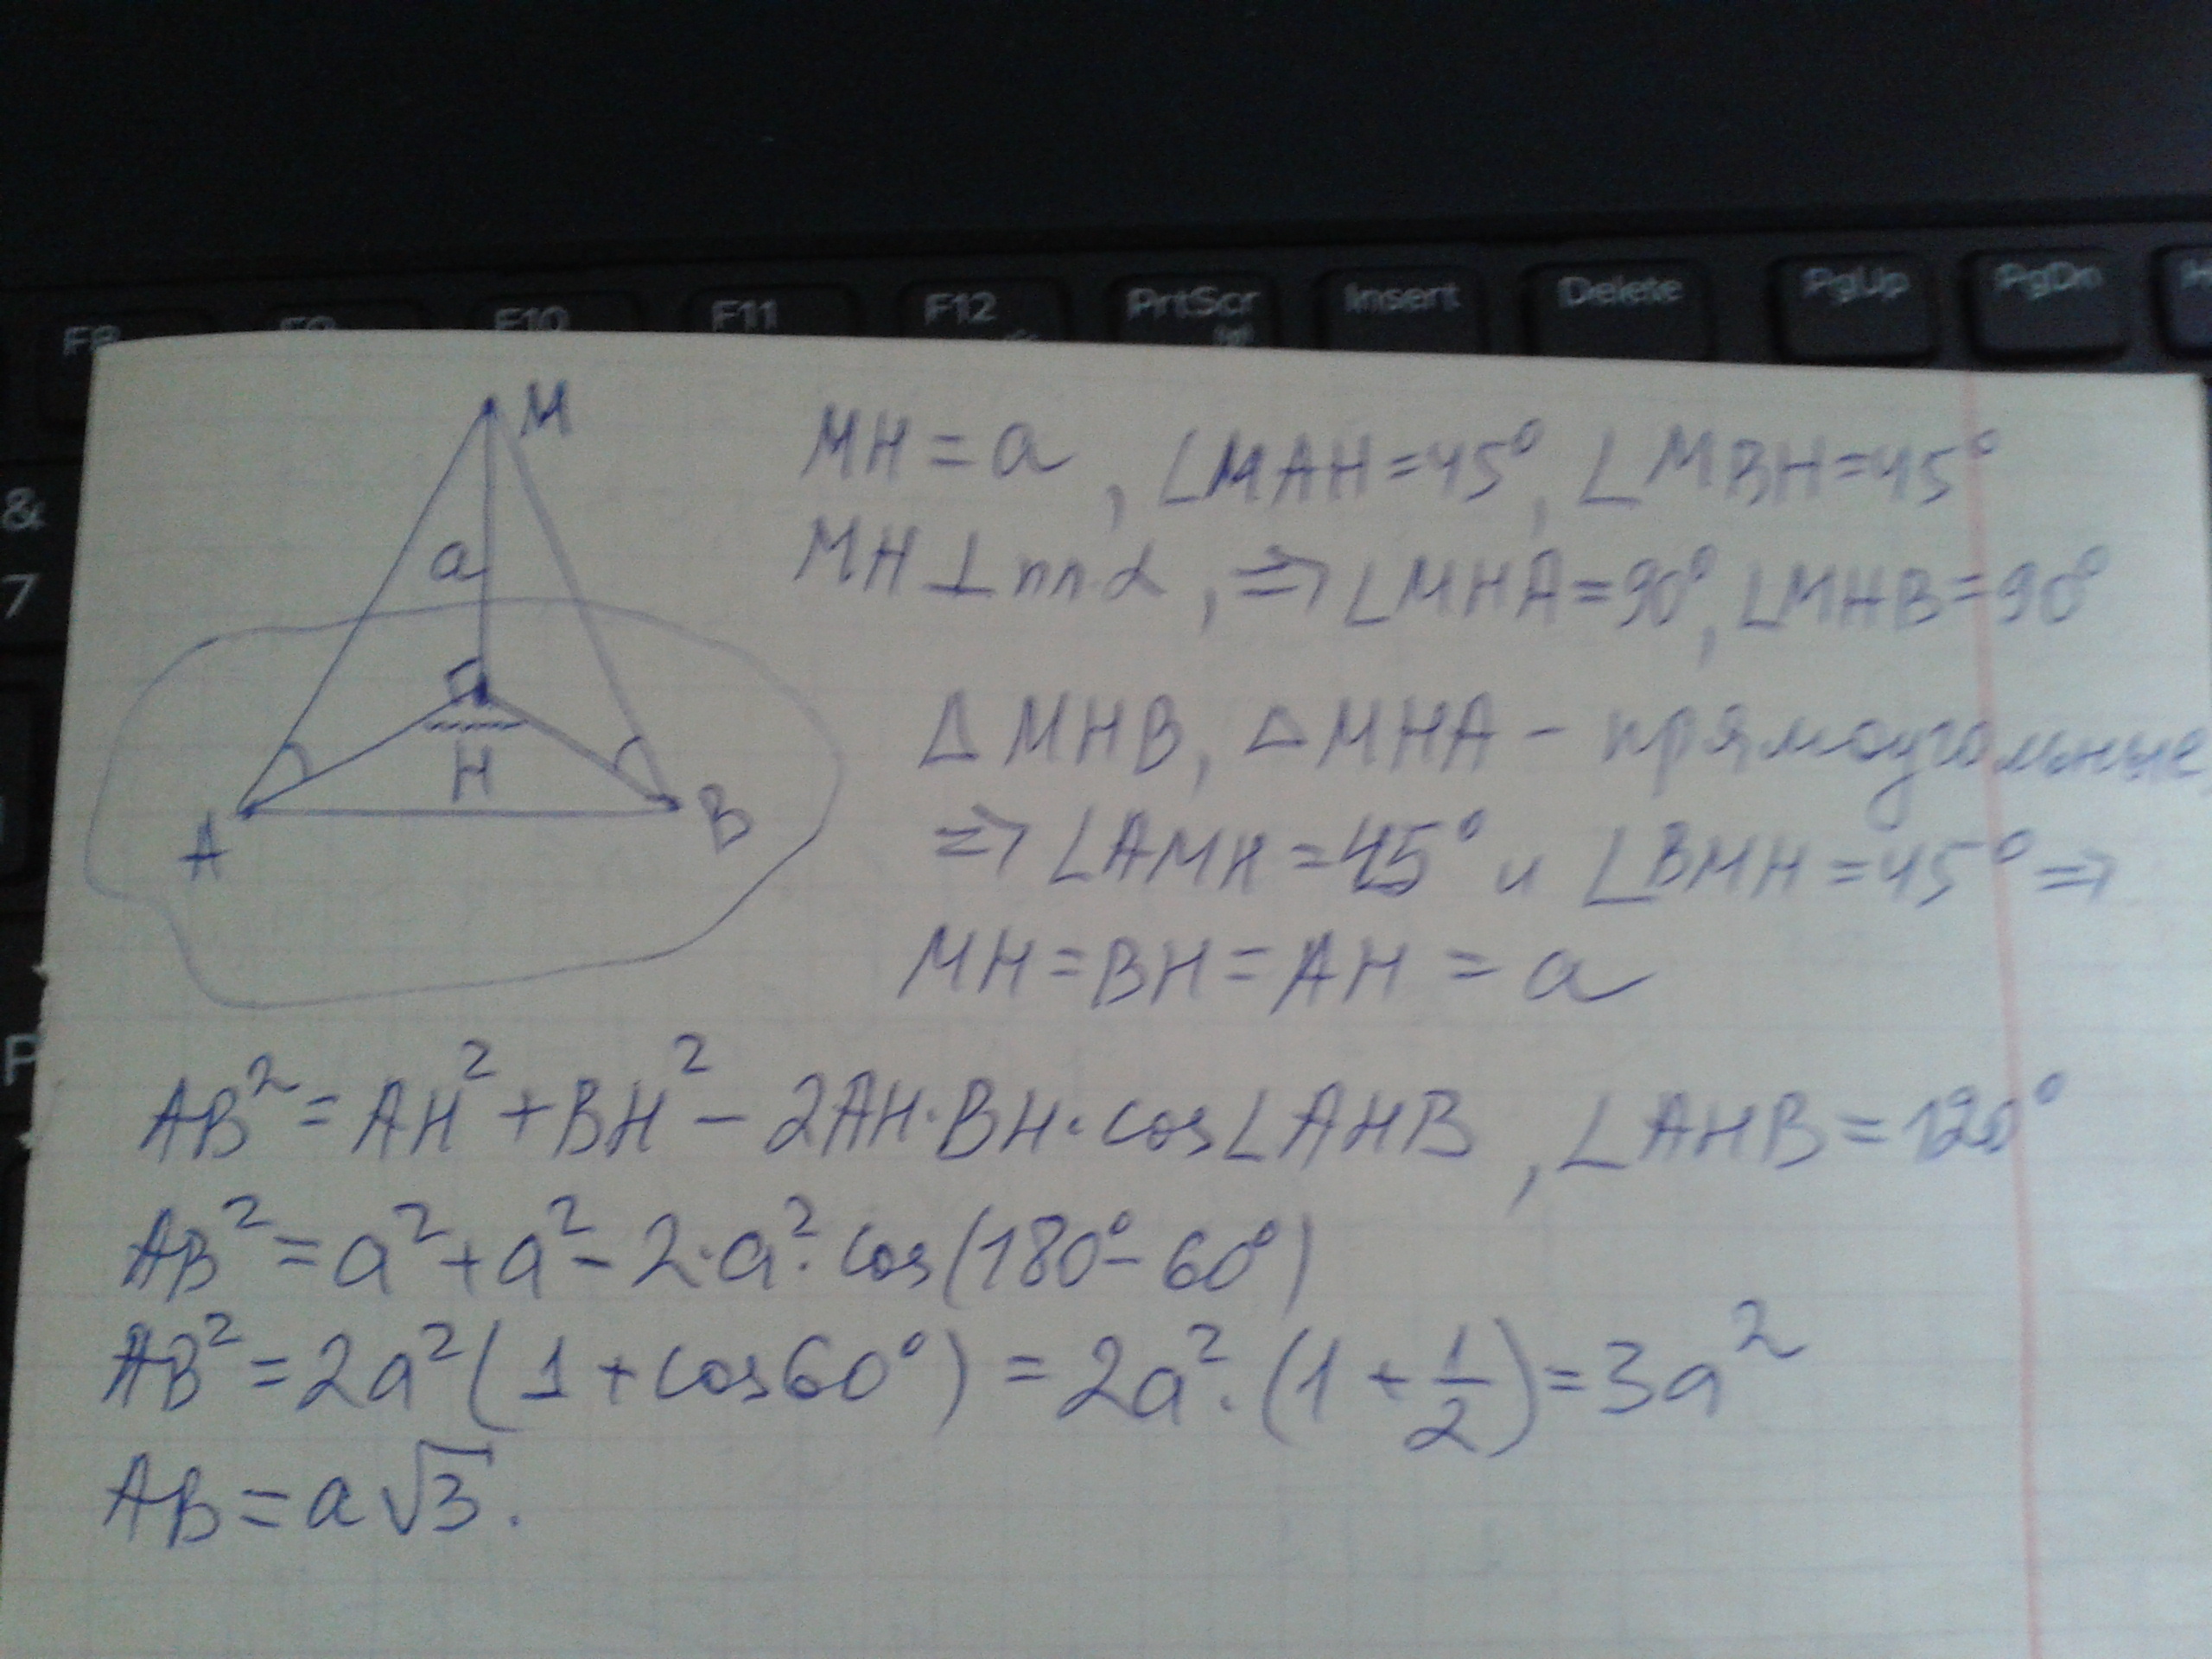 F8 F9 F10 F11 F12 PrtScr Insert Delete PgUp PgDn
&
7
P
M
a
H
A
B
MH = a, ∠MAH = 45°, ∠MBH = 45°
MH ⊥ пл. α, ⇒ ∠MHA = 90°, ∠MHB = 90°
△ MHB, △ MHA - прямоугольные,
⇒ ∠AMH = 45° и ∠BMH = 45° ⇒
MH = BH = AH = a
AB² = AH² + BH² - 2AH · BH · cos∠AHB, ∠AHB = 120°
AB² = a² + a² - 2 · a² · cos(180° - 60°)
AB² = 2a² (1 + cos60°) = 2a² · (1 + 1/2) = 3a²
AB = a√3.